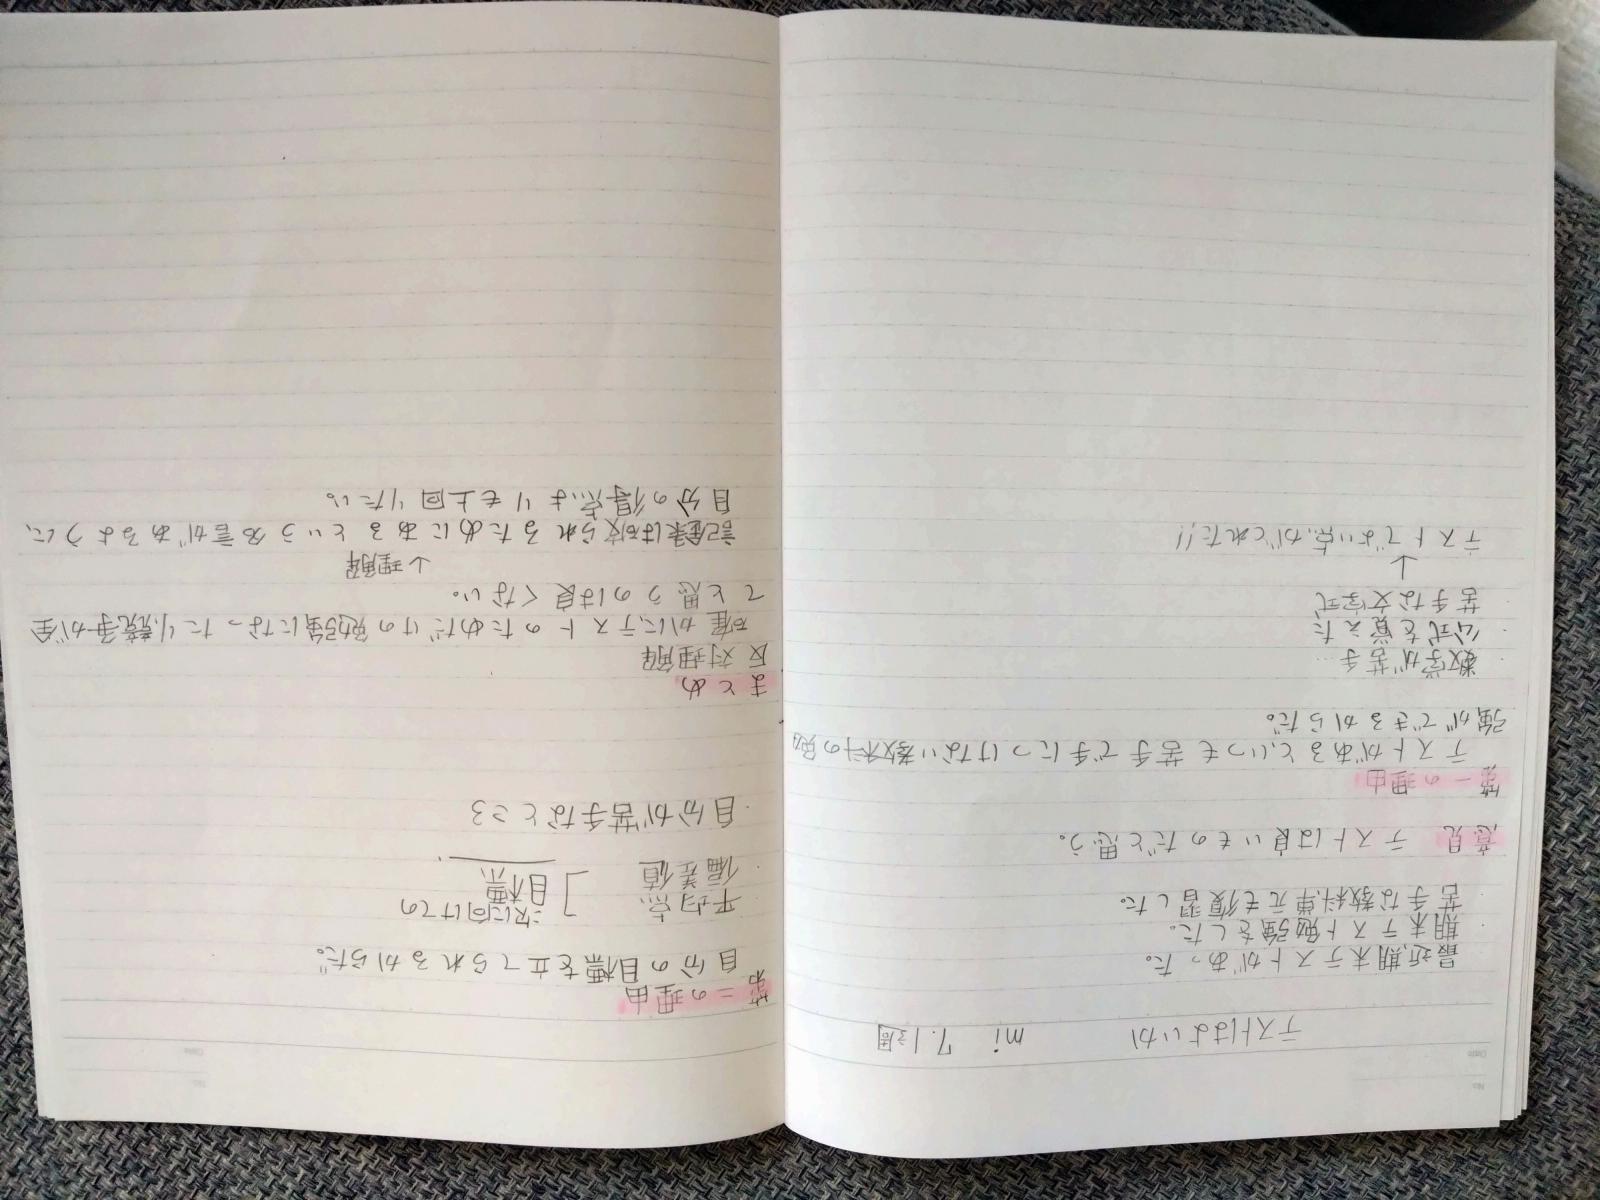 No.
Date
テストはよいか mi 7.1週
・最近、期末テストがあった。
・期末テスト勉強をした。
・苦手な教科、単元も復習した。
意見 テストは良いものだと思う。
第一の理由
テストがあると、いつも苦手で手につけない教科の勉
強ができるからだ。
・数学が苦手…
・公式を覚えた
・苦手な文字式
↓
テストでよい点がとれた!!
No.
Date
第二の理由
自分の目標を立てられるからだ。
・平均点
・偏差値
次に向けての
目標
・自分が苦手なところ
まとめ
反対理解
確かに、テストのためだけの勉強になったり、競争が全
てと思うのは良くない。
↓理解
記録は破られるためにあるという名言があるように、
自分の得点よりも上回りたい。